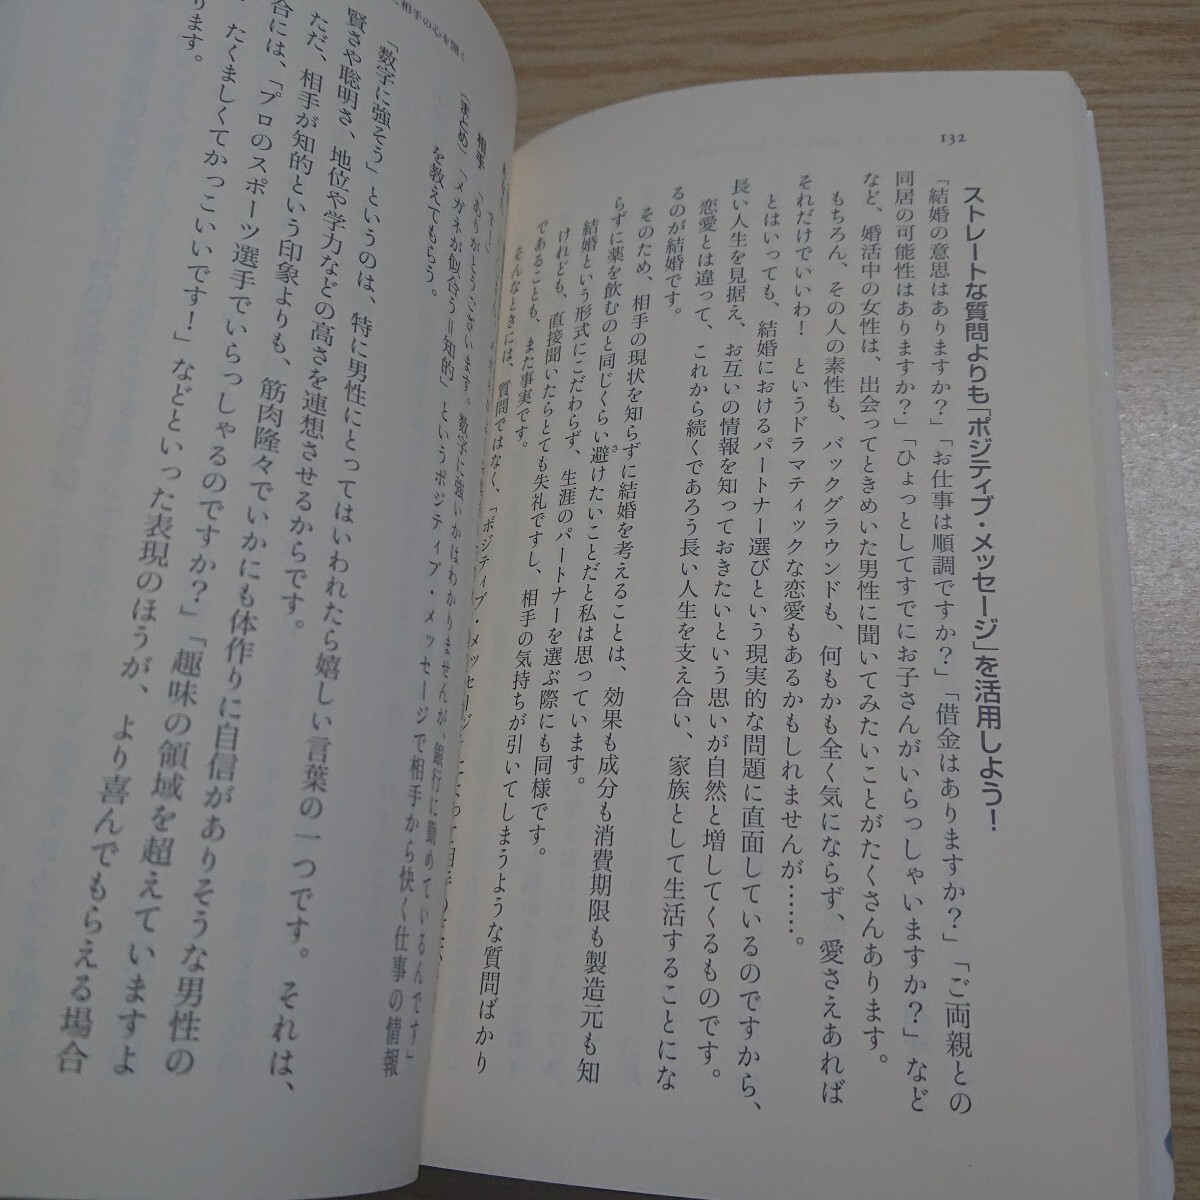 132
ストレートな質問よりも「ポジティブ・メッセージ」を活用しよう!
「結婚の意思はありますか?」「お仕事は順調ですか?」「借金はありますか?」「ご両親との
同居の可能性はありますか?」「ひょっとしてすでにお子さんがいらっしゃいますか?」など
など、婚活中の女性は、出会ってときめいた男性に聞いてみたいことがたくさんあります。
もちろん、その人の素性も、バックグラウンドも、何もかも全く気にならず、愛さえあれば
それだけでいいわ! というドラマティックな恋愛もあるかもしれませんが……。
とはいっても、結婚におけるパートナー選びという現実的な問題に直面しているのですから、
長い人生を見据え、お互いの情報を知っておきたいという思いが自然と増してくるものです。
恋愛とは違って、これから続くであろう長い人生を支え合い、家族として生活することにな
るのが結婚です。
そのため、相手の現状を知らずに結婚を考えることは、効果も成分も消費期限も製造元も知
らずに薬を飲むのと同じくらい避けたいことだと私は思っています。
結婚という形式にこだわらず、生涯のパートナーを選ぶ際にも同様です。
けれども、直接聞いたらとても失礼ですし、相手の気持ちが引いてしまうような質問ばかり
であることも、また事実です。
そんなときには、質問ではなく、「ポジティブ・メッセージ
相手の心を開く
相手 「ありがとうございます。数字に強いかはわかりませんが、銀行に勤めているんです」
(まとめ)「メガネが似合う=知的」というポジティブ・メッセージで相手から快く仕事の情報
を教えてもらう。
「数字に強そう」というのは、特に男性にとってはいわれたら嬉しい言葉の一つです。それは、
賢さや聡明さ、地位や学力などの高さを連想させるからです。
ただ、相手が知的という印象よりも、筋肉隆々でいかにも体作りに自信がありそうな男性の
合には、「プロのスポーツ選手でいらっしゃるのですか?」「趣味の領域を超えていますよ
たくましくてかっこいいです!」などといった表現のほうが、より喜んでもらえる場合
ります。